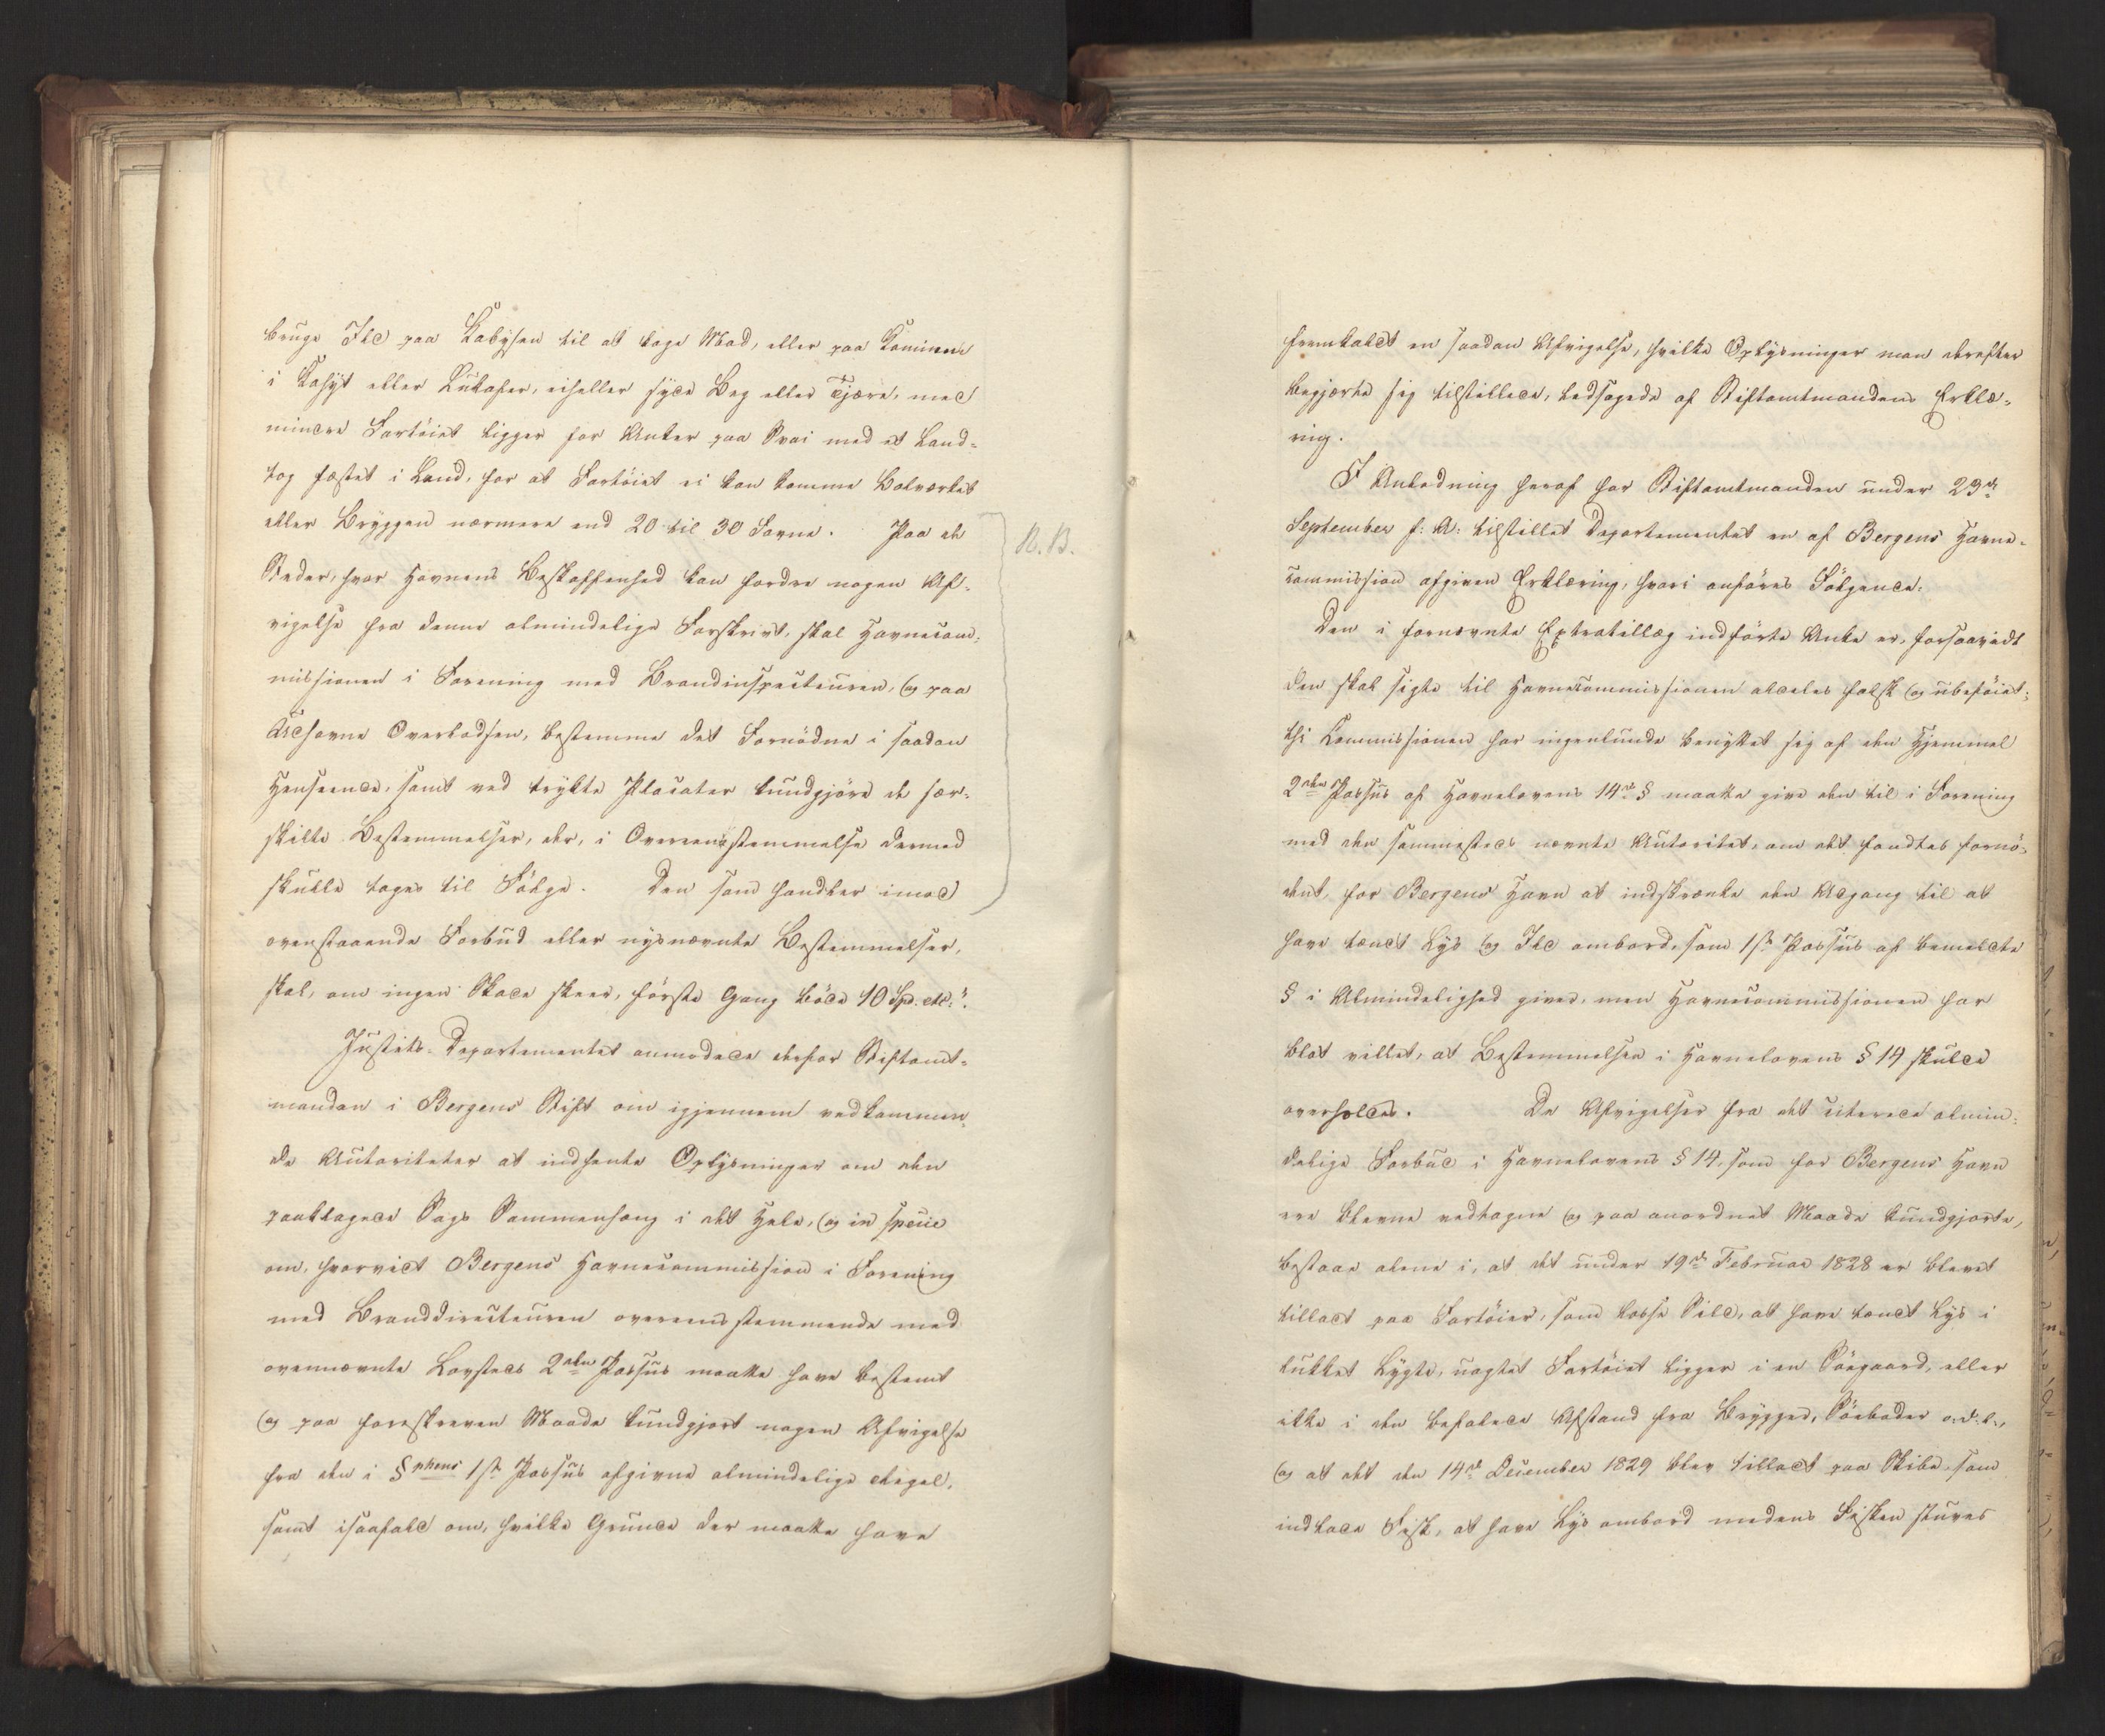 bruge Ild paa Kabysen til at koge Mad, eller paa Kaminen
i Kahyt eller Lukafer, eiheller syde Beg eller Tjære, med
mindre Fartöiet ligger for Anker paa Svai med et Land-
tog fæstet i Land, for at Fartöiet ei kan komme Bolverket
eller Bryggen nærmere end 20 til 30 Favne. Paa de
N.B.
Steder, hvor Havnens Beskaffenhed kan fordre nogen Af-
vigelse fra denne almindelige Forskrivt, skal Havnecom-
missionen i Forening med Brandinspecteuren, og paa
Udhavne Overlodsen, bestemme det Fornödne i saadan
Henseende, samt ved trykte Placater kundgjöre de sær-
skilte Bestemmelser, der, i Overeensstemmelse dermed
skulle tages til Fölge. Den som handler imod
ovenstaaende Forbud eller nysnævnte Bestemmelser,
skal, om ingen Skade skeer, förste Gang böde 10 Spd. etc.".
Justits-Departementet anmodede derfor Stiftamt-
manden i Bergens Stift om igjennem vedkommen-
de Autoriteter at indhente Oplysninger om den
paaklagede Sags Sammenhæng i det Hele, og in specie
om, hvorvidt Bergens Havnecommission i Forening
med Branddirecteuren overeensstemmende med
ovennævnte Lovsteds 2den Passus maatte have bestemt
og paa foreskreven Maade kundgjort nogen Afvigelse
fra den i §phens 1ste Passus afgivne almindelige Regel,
samt isaafald om, hvilke Grunde der maatte have
fremkaldt en saadan Afvigelse, hvilke Oplysninger man derefter
begjærte sig tilstillede, ledsagede af Stiftamtmandens Erklæ-
ring.
I Anledning heraf har Stiftamtmanden under 23de
September f: A: tilstillet Departementet en af Bergens Havne-
commission afgiven Erklæring, hvori anföres Fölgende:
Den i fornævnte Extratillæg indförte Anke er, forsaavidt
den skal sigte til Havnecommissionen aldeles falsk og ubeföiet;
thi Commissionen har ingenlunde benyttet sig af den Hjemmel
2den Passus af Havnelovens 14de § maatte give den til i Forening
med den sammesteds nævnte Autoritet, om det fandtes fornö-
dent, for Bergens Havn at indskrænke den Adgang til at
have tændt Lys og Ild ombord, som 1ste Passus af bemeldte
§ i Almindelighed giver, men Havnecommissionen har
blot villet, at Bestemmelsen i Havnelovens § 14 skulde
overholdes. De Afvigelser fra det citerede almin-
delige Forbud i Havnelovens § 14, som for Bergens Havn
ere blevne vedtagne og paa anordnet Maade kundgjorte,
bestaae alene i, at det under 19de Februar 1828 er blevet
tilladt paa Fartöier, som losse Sild, at have tændt Lys i
lukket Lygte, uagtet Fartöiet ligger i en Söegaard, eller
ikke i den befalede Afstand fra Brygger, Söeboder o.d.l.,
og at det den 14de December 1829 blev tilladt paa Skibe, som
indlade Fisk, at have Lys ombord medens Fisken stuves